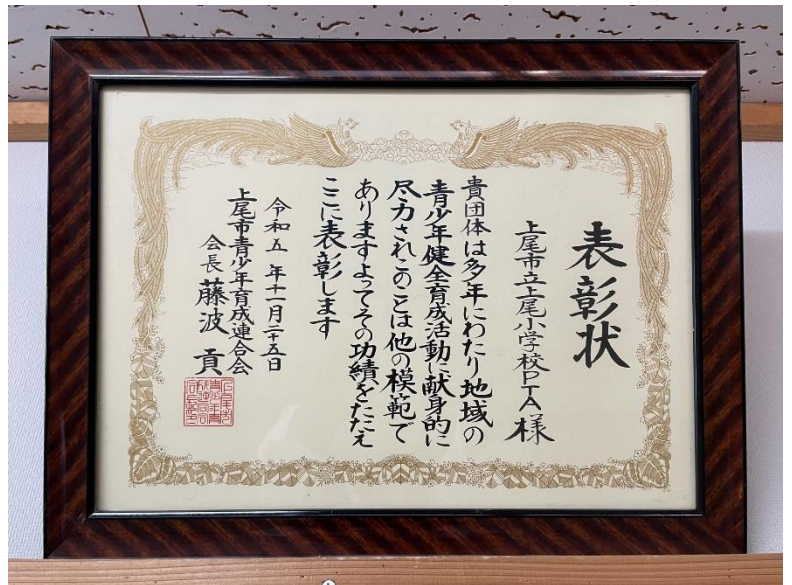 表彰状
上尾市立上尾小学校PTA様
貴団体は多年にわたり地域の
青少年健全育成活動に献身的に
尽力されこのことは他の模範で
ありますよってその功績をたたえ
ここに表彰します
令和五年十一月二十五日
上尾市青少年育成連合会
会長 藤波 貢